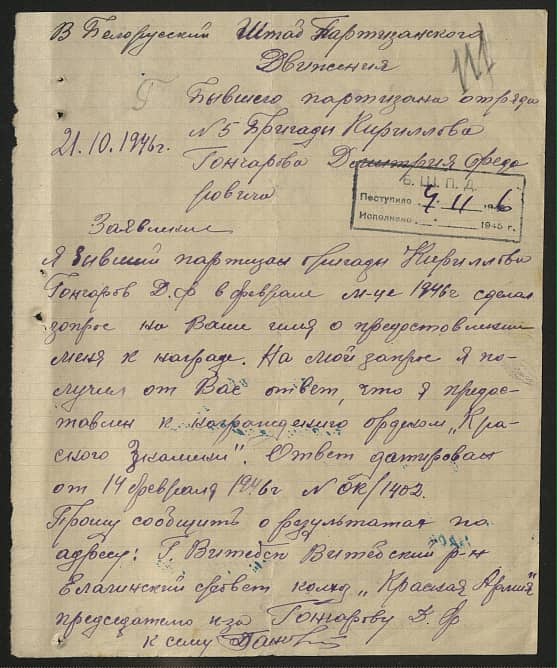 В Белорусский Штаб Партизанского
Движения
111
Бывшего партизана отряда
21.10.1946г. N 5 Бригады Кириллова
Гончарова Дмитрия Федо
ровича
Б. Ш. П. Д.
Поступило 4. 11 6
Исполнено 1945 г.
Заявление
Я бывший партизан бригады Кириллова
Гончаров Д.Ф в феврале м-це 1946г сделал
запрос на Ваше имя о предоставлении
меня к награде. На мой запрос я по-
лучил от Вас ответ, что я предос-
тавлен к награждению орденом „Кра-
ского Знамени". Ответ датирован
от 14 февраля 1946г N ОК/1402.
Прошу сообщить о результатах по
адресу: Г Витебск Витебский р-н
сộвет колхоз „Красная Армия"
председателю к-за Гончарову Д. Ф
к сему